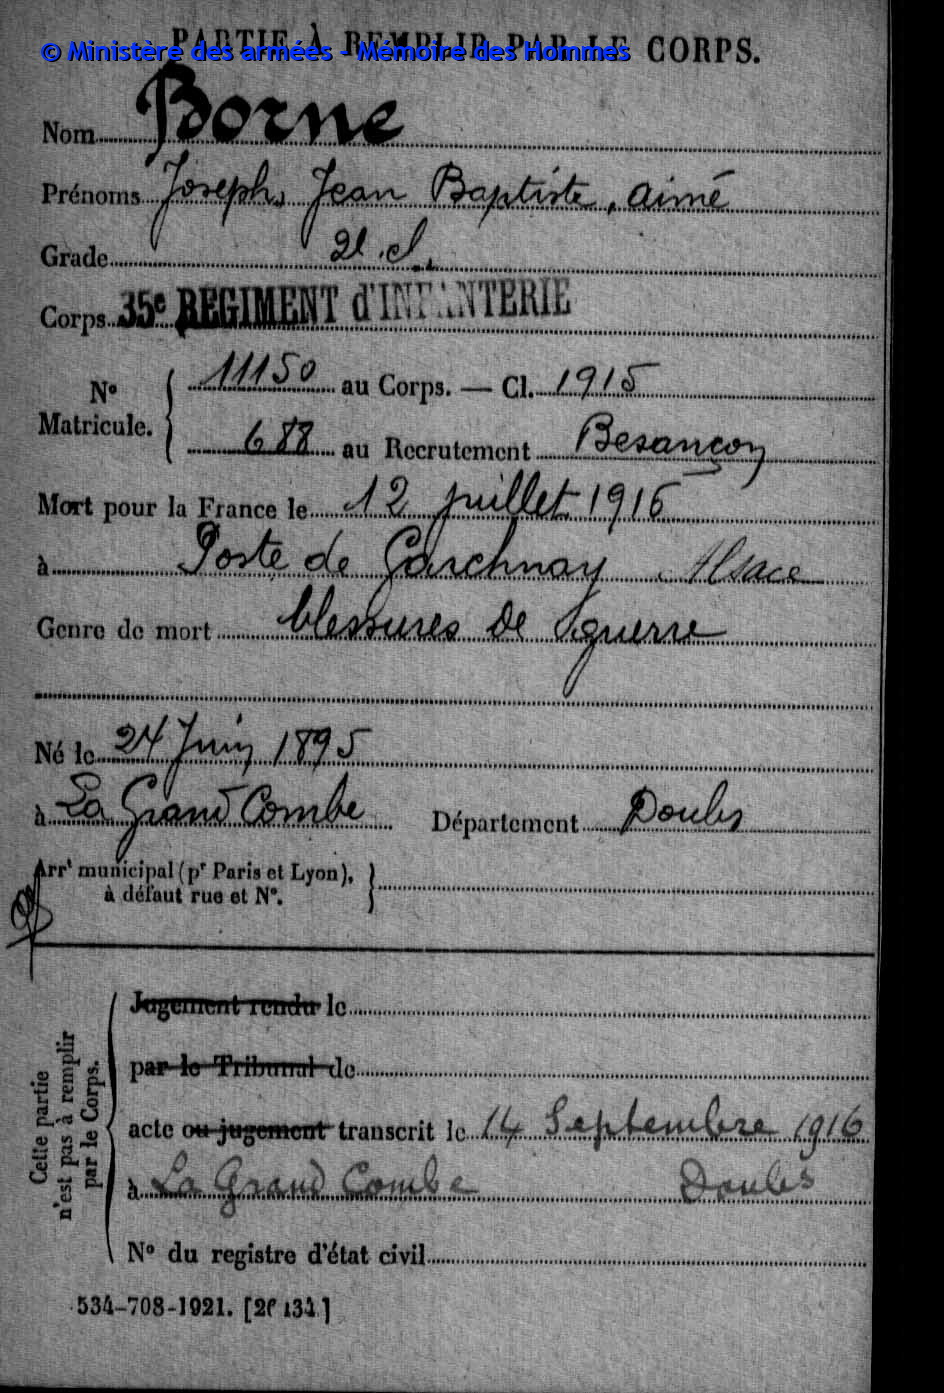 PARTIE À REMPLIR PAR LE CORPS.
© Ministère des armées - Mémoire des Hommes
Nom Borne
Prénoms Joseph, Jean Baptiste, aimé
Grade 2e cl.
Corps 35e REGIMENT d'INFANTERIE
N° Matricule. 11150 au Corps. — Cl. 1915
688 au Recrutement Besançon
Mort pour la France le 12 juillet 1916
à Poste de Garchnay Alsace
Genre de mort blessures de guerre
Né le 24 Juin 1895
à La Grand Combe Département Doubs
Arrt municipal (pr Paris et Lyon),
à défaut rue et N°.
Cette partie
n'est pas à remplir
par le Corps.
Jugement rendu le
par le Tribunal de
acte ou jugement transcrit le 14 Septembre 1916
à La Grand Combe Doubs
N° du registre d'état civil
534-708-1921. [26434]